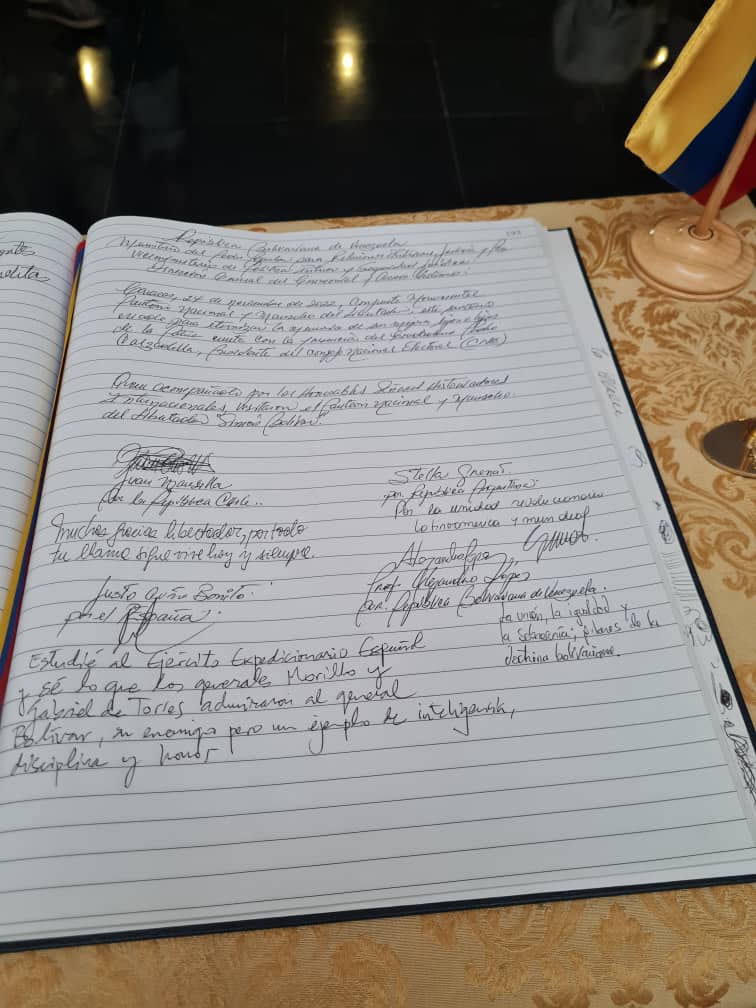 República Bolivariana de Venezuela
Ministerio del Poder Popular para Relaciones Interiores, Justicia y Paz
Viceministerio de Política Interior y Seguridad Jurídica
Dirección General del Ceremonial y Acervo Histórico.
Caracas, 24 de noviembre de 2022, Conjunto Monumental
Panteón Nacional y Mausoleo del Libertador: este
para eternizar la de sus hijos e hijas
de la Patria con la del Pedro
Calzadilla, Presidente del Consejo Nacional Electoral (CNE)
acompañado por los Honorables Historiadores
Internacionales, visitaron el Panteón Nacional y Mausoleo
del Libertador "Simón Bolívar".
Juan
por la República Chile..
Muchas gracias libertador, por todo
tu llama sigue vive hoy y siempre.
Stella Grenat.
por República Argentina:
Por la unidad revolucionaria
Latinoamerica y mundial
Justo Bonito.
por el España.
Prof. Alejandro López
por: República Bolivariana de Venezuela.
La unión, la igualdad y
la soberanía; pilares de la
doctrina bolivariana.
Estudié al Ejército Expedicionario Español
y sé lo que los generales Morillo y
Gabriel de Torres admiraron al general
Bolívar, su enemigo pero un ejemplo de inteligencia,
disciplina y honor